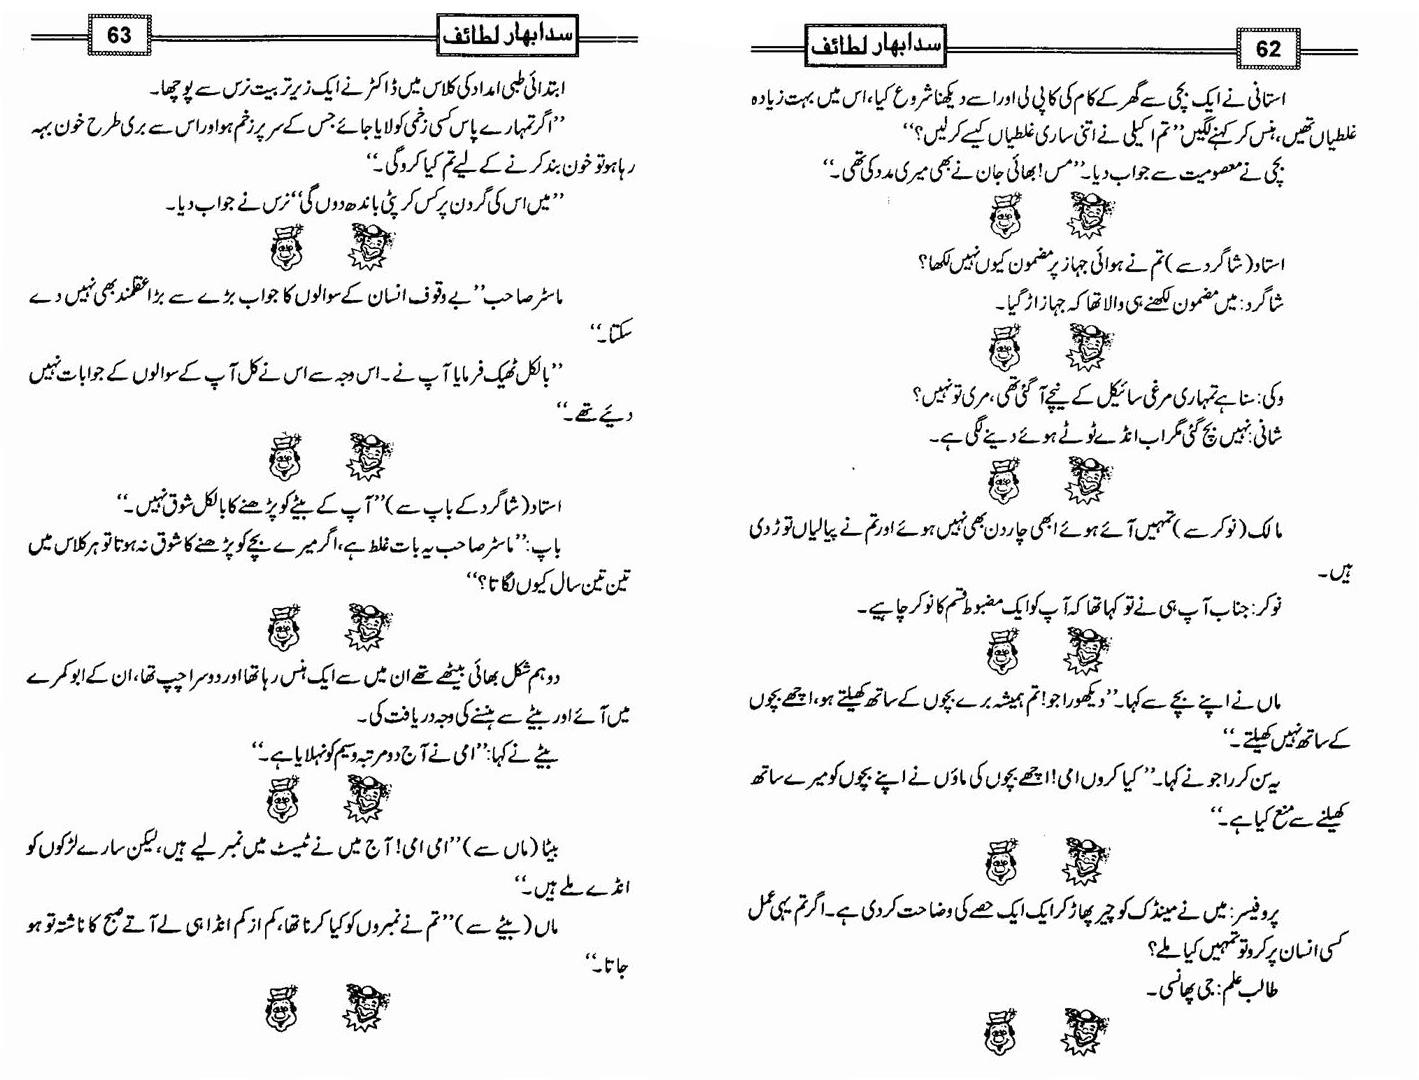 62
سدا بہار لطائف
استانی نے ایک بچی سے گھر کے کام کی کاپی لی اور اسے دیکھنا شروع کیا، اس میں بہت زیادہ
غلطیاں تھیں، ہنس کر کہنے لگیں ”تم اکیلی نے اتنی ساری غلطیاں کیسے کر لیں؟“
بچی نے معصومیت سے جواب دیا۔ ”مس! بھائی جان نے بھی میری مدد کی تھی۔“
استاد (شاگرد سے) تم نے ہوائی جہاز پر مضمون کیوں نہیں لکھا؟
شاگرد: میں مضمون لکھنے ہی والا تھا کہ جہاز اڑ گیا۔
وکی: سنا ہے تمہاری مرغی سائیکل کے نیچے آ گئی تھی، مری تو نہیں؟
شانی: نہیں بچ گئی مگر اب انڈے ٹوٹے ہوئے دینے لگی ہے۔
مالک (نوکر سے) تمہیں آئے ہوئے ابھی چار دن بھی نہیں ہوئے اور تم نے پیالیاں توڑ دی
ہیں۔
نوکر: جناب آپ ہی نے تو کہا تھا کہ آپ کو ایک مضبوط قسم کا نوکر چاہیے۔
ماں نے اپنے بچے سے کہا۔ ”دیکھو راجو! تم ہمیشہ برے بچوں کے ساتھ کھیلتے ہو، اچھے بچوں
کے ساتھ نہیں کھیلتے۔“
یہ سن کر راجو نے کہا۔ ”کیا کروں امی! اچھے بچوں کی ماؤں نے اپنے بچوں کو میرے ساتھ
کھیلنے سے منع کیا ہے۔“
پروفیسر: میں نے مینڈک کو چیر پھاڑ کر ایک ایک حصے کی وضاحت کر دی ہے۔ اگر تم یہی عمل
کسی انسان پر کرو تو تمہیں کیا ملے؟
طالب علم: جی پھانسی۔
سدا بہار لطائف
63
ابتدائی طبی امداد کی کلاس میں ڈاکٹر نے ایک زیر تربیت نرس سے پوچھا۔
”اگر تمہارے پاس کسی زخمی کو لایا جائے جس کے سر پر زخم ہو اور اس سے بری طرح خون بہہ
رہا ہو تو خون بند کرنے کے لیے تم کیا کرو گی۔“
”میں اس کی گردن پر کس کر پٹی باندھ دوں گی“ نرس نے جواب دیا۔
ماسٹر صاحب ”بے وقوف انسان کے سوالوں کا جواب بڑے سے بڑا عقلمند بھی نہیں دے
سکتا۔“
”بالکل ٹھیک فرمایا آپ نے۔ اس وجہ سے اس نے کل آپ کے سوالوں کے جوابات نہیں
دیئے تھے۔“
استاد (شاگرد کے باپ سے) ”آپ کے بیٹے کو پڑھنے کا بالکل شوق نہیں۔“
باپ: ”ماسٹر صاحب یہ بات غلط ہے، اگر میرے بچے کو پڑھنے کا شوق نہ ہوتا تو ہر کلاس میں
تین تین سال کیوں لگاتا؟“
دو ہم شکل بھائی بیٹھے تھے ان میں سے ایک ہنس رہا تھا اور دوسرا چپ تھا، ان کے ابو کمرے
میں آئے اور بیٹے سے ہنسنے کی وجہ دریافت کی۔
بیٹے نے کہا: ”امی نے آج دو مرتبہ وسیم کو نہلایا ہے۔“
بیٹا (ماں سے) ”امی امی! آج میں نے ٹیسٹ میں نمبر لیے ہیں، لیکن سارے لڑکوں کو
انڈے ملے ہیں۔“
ماں (بیٹے سے) ”تم نے نمبروں کو کیا کرنا تھا، کم از کم انڈا ہی لے آتے صبح کا ناشتہ تو ہو
جاتا۔“